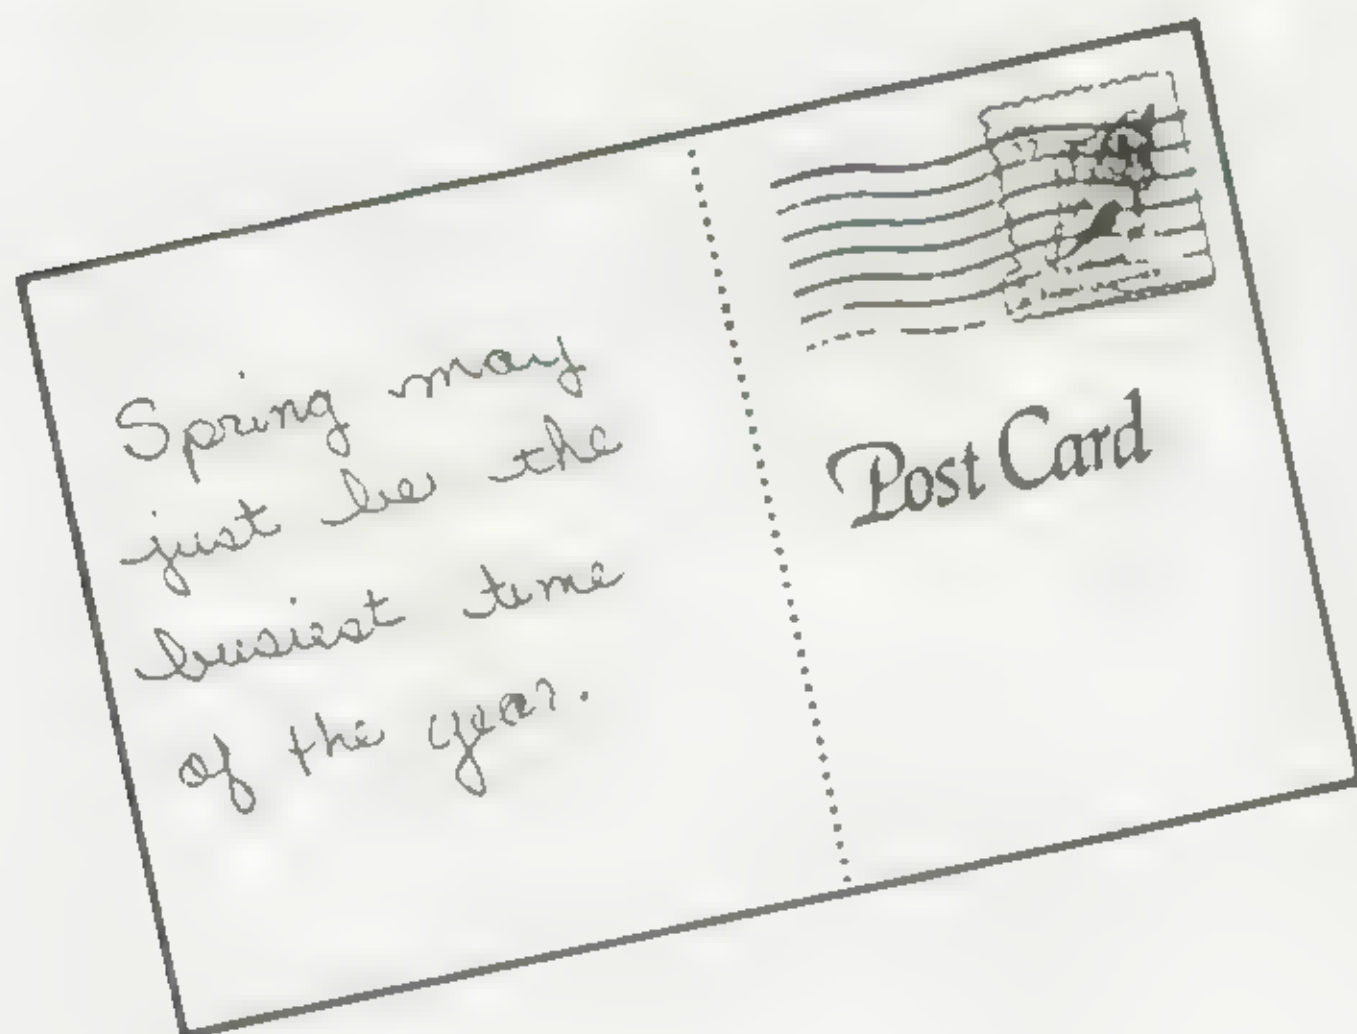 Spring may
just be the
busiest time
of the year.
Post Card